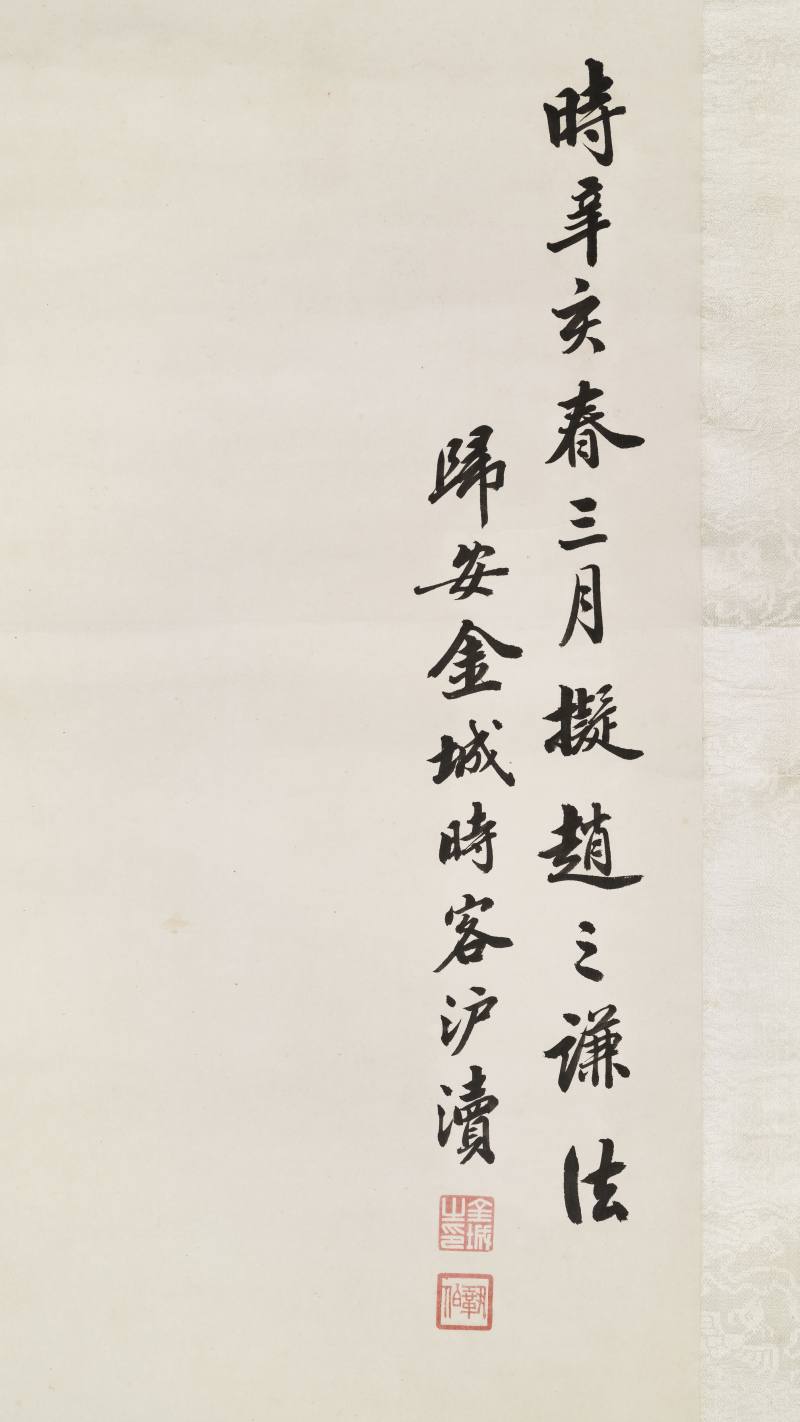 時辛亥春三月擬趙之謙法
歸安金城時客沪瀆
金城之印